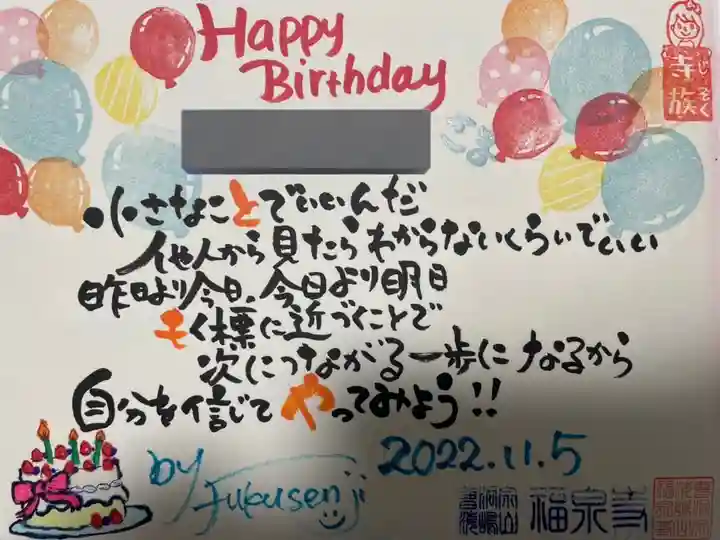 Happy
Birthday
さん
じ ぞく
寺族
小さなことでいいんだ
他人から見たらわからないくらいでいい
昨日より今日、今日より明日
もく標に近づくことで
次につながる一歩になるから
自分を信じてやってみよう!!
by Fukusenji
2022.11.5
福泉寺